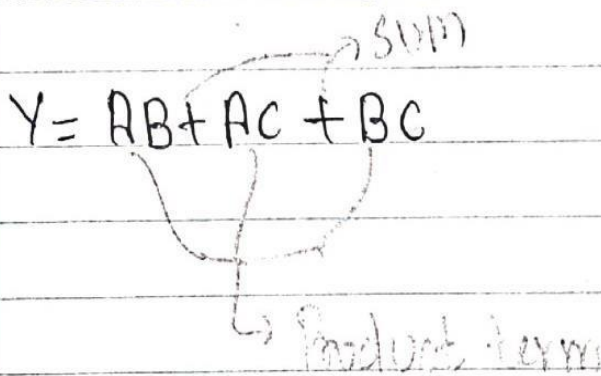 Sum
Y = AB + AC + BC
Product term